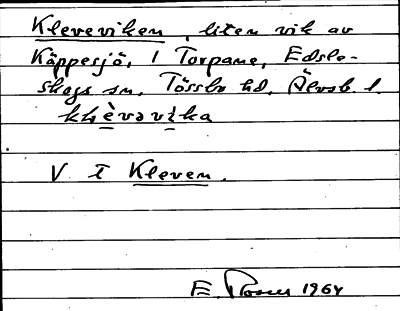 Kleveviken, liten vik av
Käppesjö, i Torpane, Edsle-
skogs sn, Tössbo hd, Älvsb. l.
V. I Kleven.
E. 1964